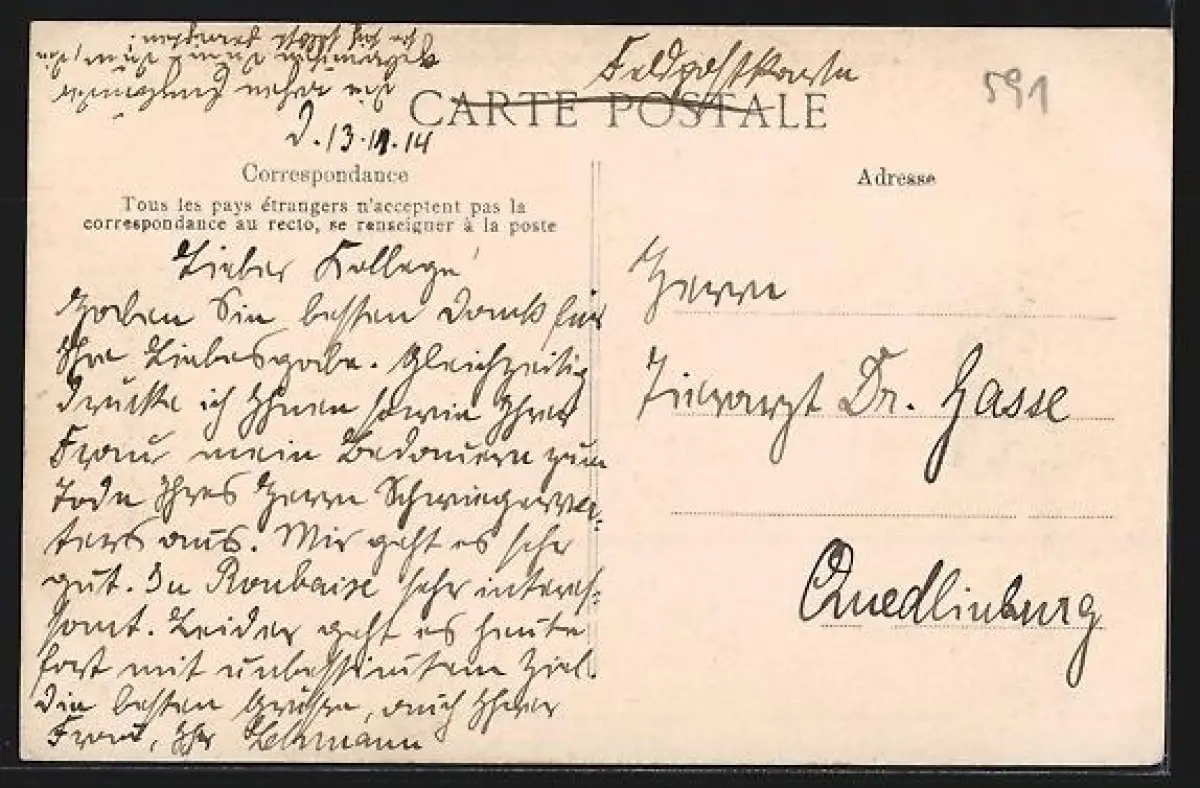 Feldpostkarte
591
CARTE POSTALE
D. 13.11.14
Correspondance
Tous les pays étrangers n'acceptent pas la
correspondance au recto, se renseigner à la poste
Lieber Kollege!
Haben Sie besten Dank für
Ihre Liebesgabe. Gleichzeitig
drücke ich Ihnen sowie Ihrer
Frau mein Bedauern zum
Tode Ihres Herrn Schwiegerva-
ters aus. Mir geht es sehr
gut. In Roubaix sehr interes-
sant. Leider geht es heute
fort mit unbestimtem Ziel.
Die besten Grüße, auch Ihrer
Frau, Ihr Lehmann
Adresse
Herrn
Tierarzt Dr. Gasse
Quedlinburg